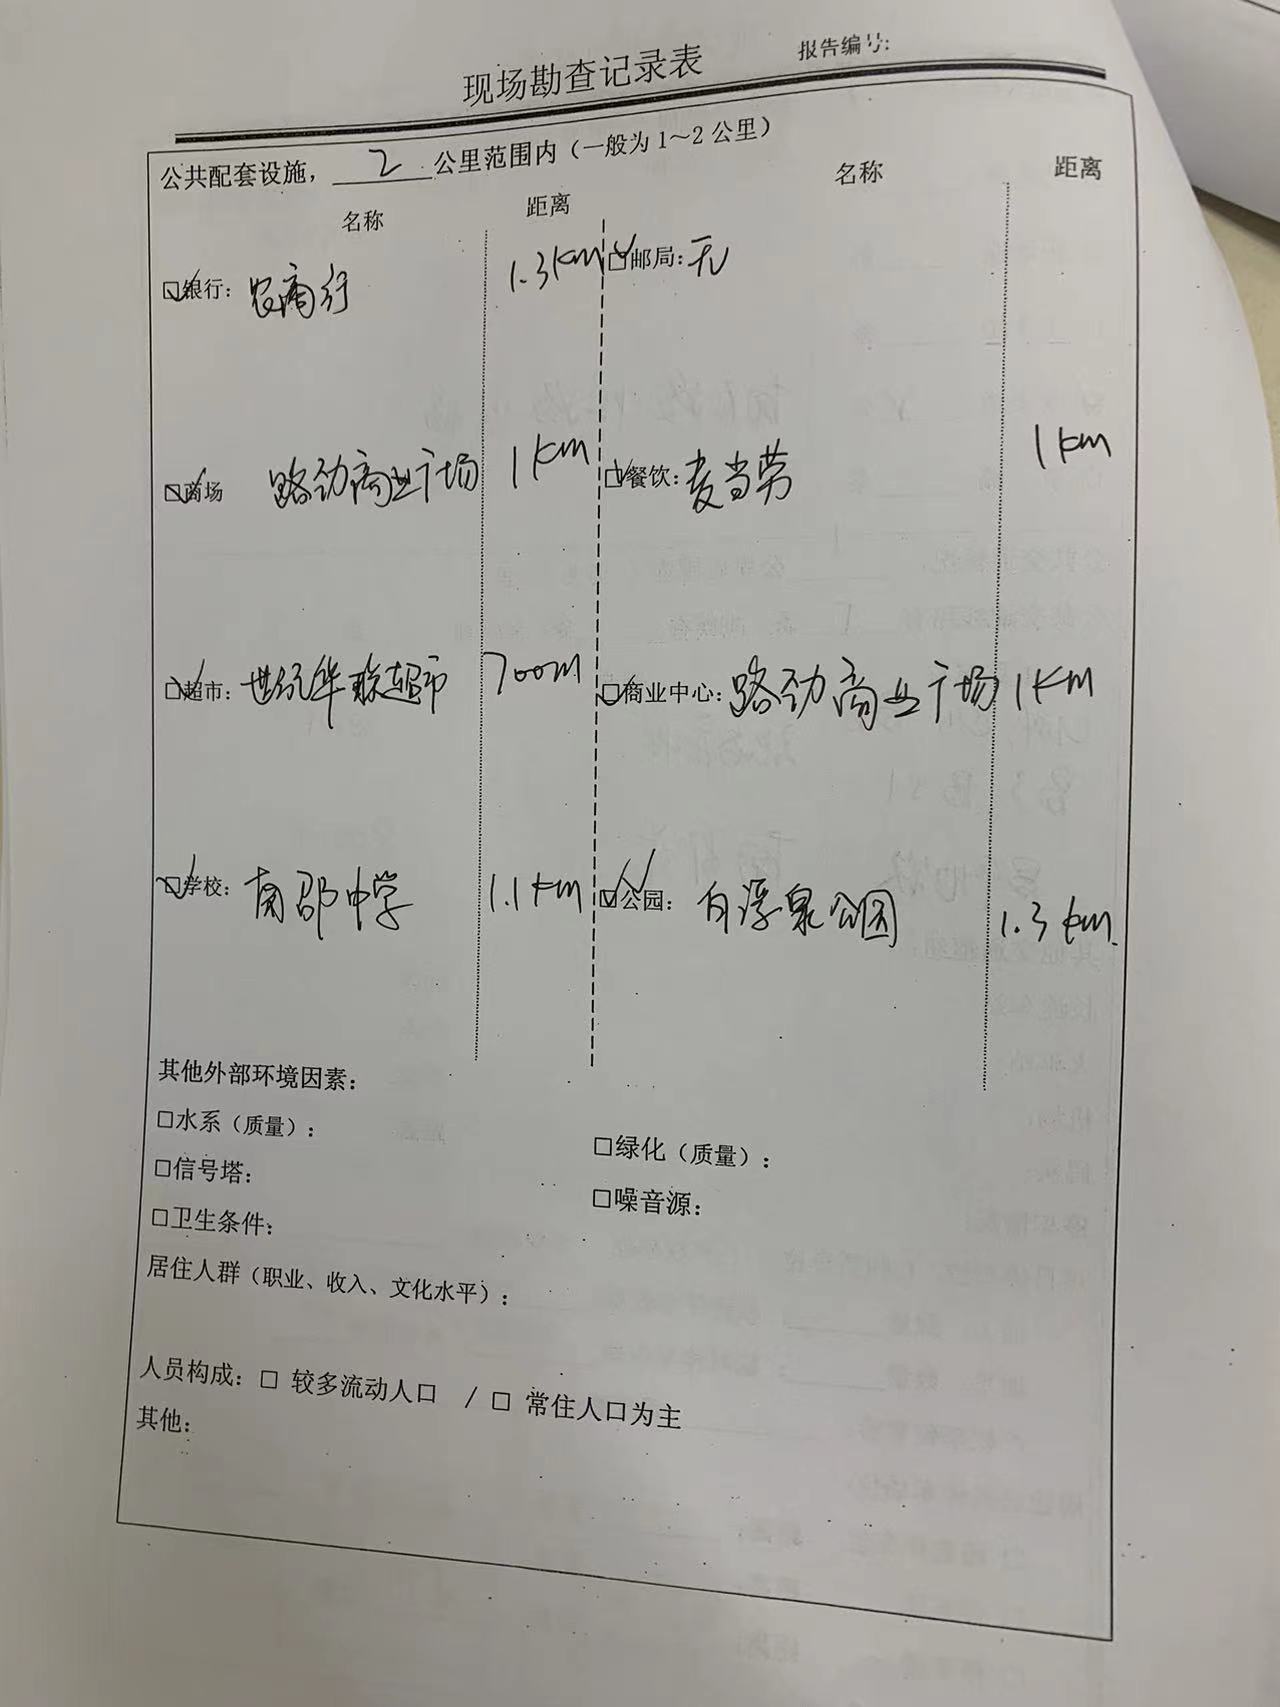 现场勘查记录表 报告编号:
公共配套设施，2公里范围内（一般为1～2公里）
名称 距离 名称 距离
☑银行：农商行 1.3km ☑邮局：无
☑商场 路劲商业广场 1km ☑餐饮：麦当劳 1km
☑超市：世纪华联超市 700m ☑商业中心：路劲商业广场 1km
☑学校：南邵中学 1.1km ☑公园：白浮泉公园 1.3km.
其他外部环境因素：
□水系（质量）： □绿化（质量）：
□信号塔： □噪音源：
□卫生条件：
居住人群（职业、收入、文化水平）：
人员构成：□ 较多流动人口 / □ 常住人口为主
其他：